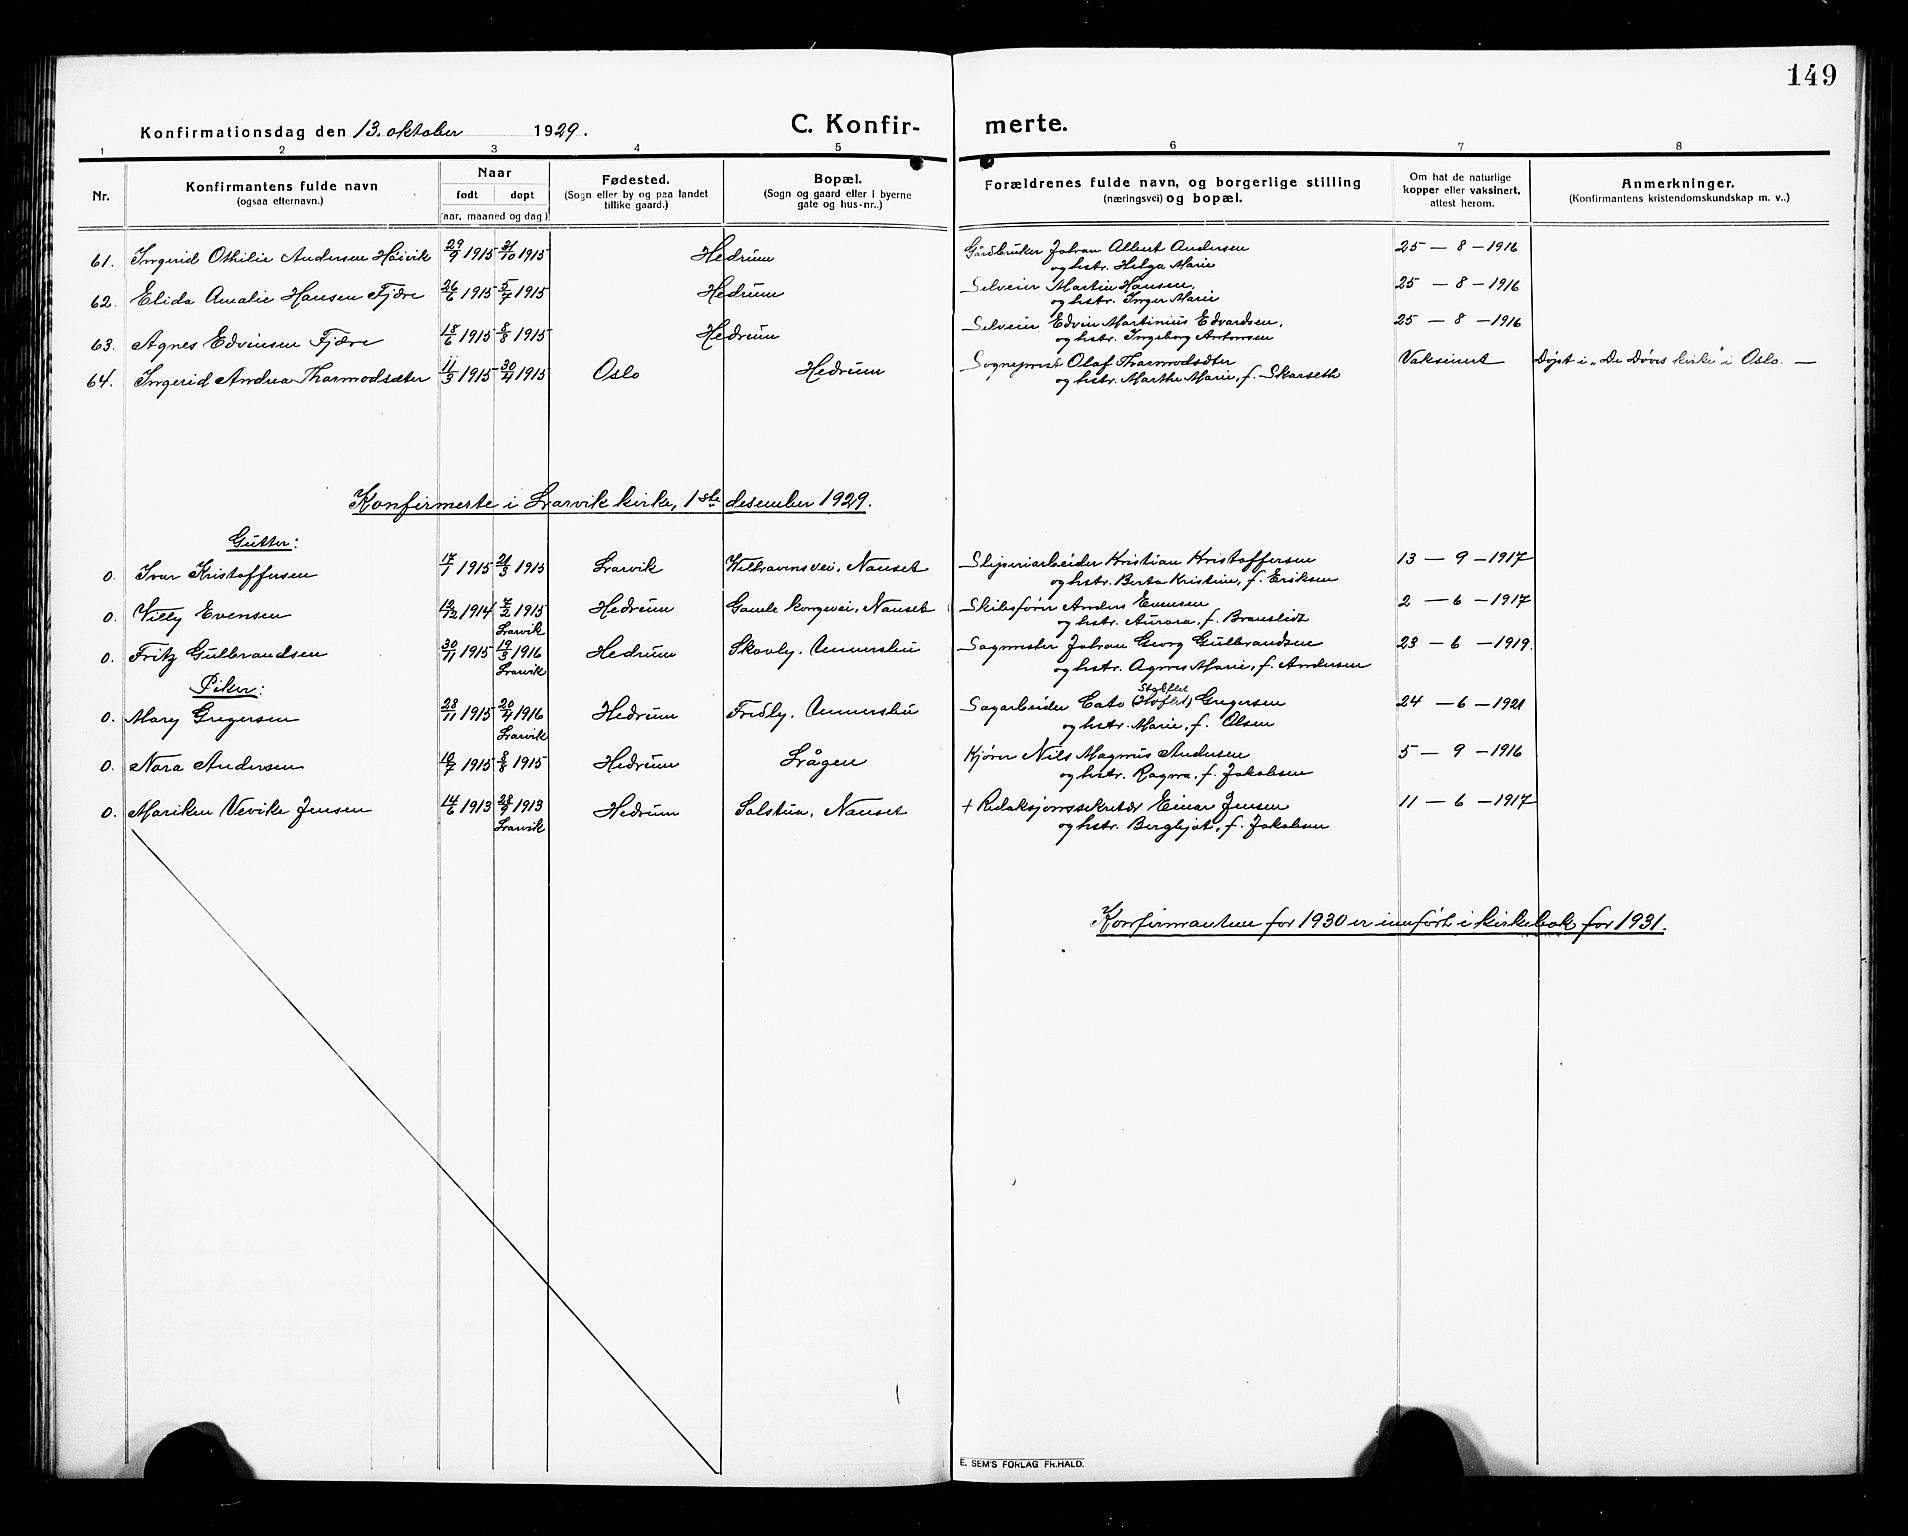 149
Konfirmationsdag den 13. oktober 1929.
C. Konfir- merte.
1 2 3 4 5 6 7 8
Nr.
Konfirmantens fulde navn
(ogsaa efternavn.)
Naar
født døpt
(aar, maaned og dag)
Fødested.
(Sogn eller by og paa landet
tillike gaard.)
Bopæl.
(Sogn og gaard eller i byerne
gate og hus-nr..)
Forældrenes fulde navn, og borgerlige stilling
(næringsvei) og bopæl.
Om hat de naturlige
kopper eller vaksinert,
attest herom.
Anmerkninger.
(Konfirmantens kristendomskundskap m. v..)
61. Ingerid Othilie Andersen Håivik 29/9 1915 31/10 1915 Hedrum Gårdbruker Johan Albert Andersen 25 - 8 - 1916
og hstr. Helga Marie
62. Elida Amalie Hansen Fjære 26/6 1915 5/7 1915 Hedrum Selveier Martin Hansen, 25 - 8 - 1916
og hstr. Inger Marie
63. Agnes Edvinsen Fjære 18/6 1915 8/8 1915 Hedrum Selveier Edvin Martinius Edvardsen, 25 - 8 - 1916
og hstr. Ingeborg Antonsen
64. Ingerid Andrea Thormodsæter 11/3 1915 30/4 1915 Oslo Hedrum Sogneprest Olaf Thormodsæter Vaksinert Døpt i „De Døves kirke" i Oslo. —
og hstr. Marthe Marie, f. Skarseth
Konfirmerte i Larvik kirke, 1ste desember 1929.
Gutter:
0. Ivar Kristoffersen 17/1 1915 21/3 1915 Larvik Nanset Sliperiarbeider Kristian Kristoffersen 13 - 9 - 1917
og hstr. Berta Kristine, f. Eriksen
0. Willy Evensen 1914 7/2 1915 Hedrum Gamle kongevei, Nanset Skibsfører Anders Evensen 2 - 6 - 1917
Larvik og hstr. Aurora, f.
0. Fritz Gulbrandsen 30/11 1915 19/3 1916 Hedrum Skovly. Unnershu Sagmester Johan Georg Gulbrandsen 23 - 6 - 1919.
Larvik og hstr. Agnes Marie, f. Andersen
Piker:
0. Mary Gregersen 28/11 1915 20/4 1916 Hedrum Fredly. Unnershu Sagarbeider Cato Gregersen 24 - 6 - 1921
Larvik og hstr. Marie, f. Olsen
0. Nora Andersen 1915 8/8 1915 Hedrum Lågen Kjører Nils Magnus Andersen 5 - 9 - 1916
og hstr. Ragna, f. Jakobsen
0. Mariken Vevike Jensen 14/6 1913 28/9 1913 Hedrum Solstua, Nanset + Redaksjonssekretær Einar Jensen 11 - 6 - 1917
Larvik og hstr. Bergljot, f. Jakobsen
Konfirmantene for 1930 er innført i kirkebok for 1931.
E. SEM'S FORLAG FR.HALD.